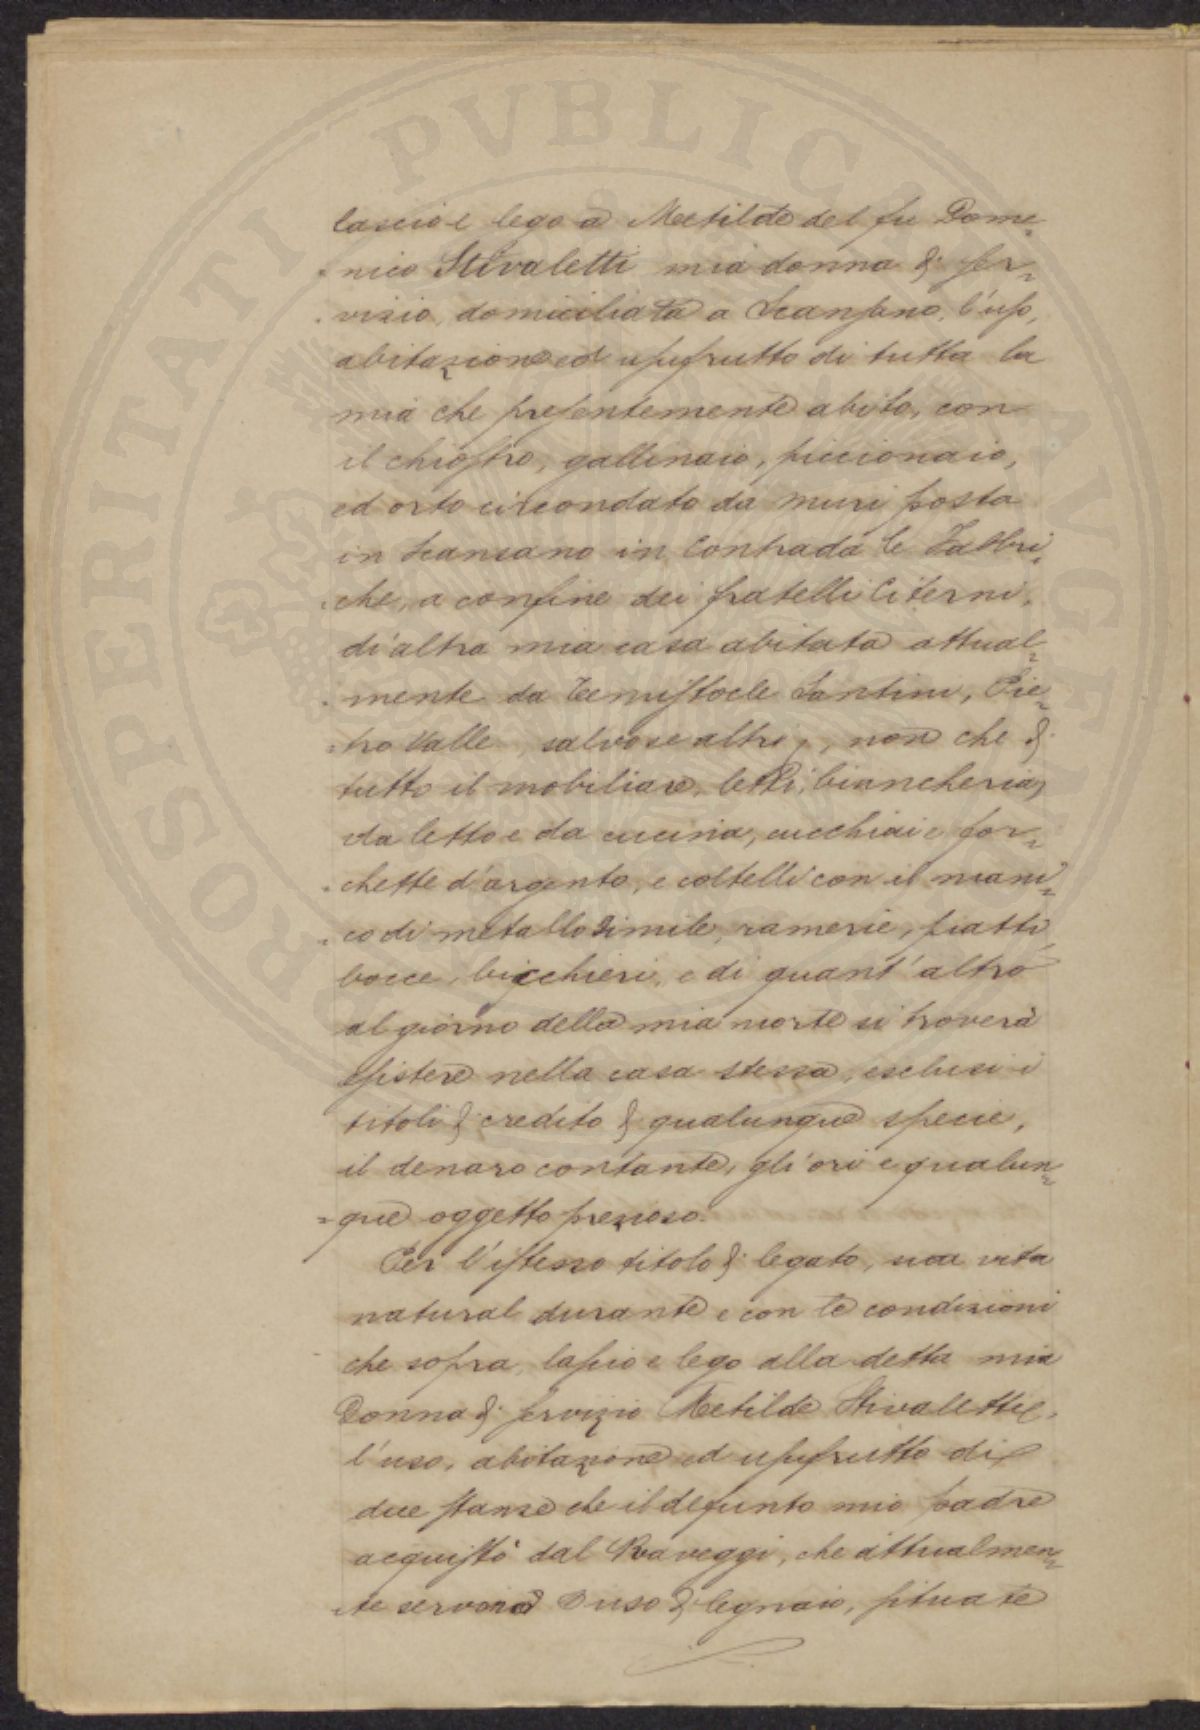 lascio e lego a Metilde del fu Dome-
-nico Stivaletti mia donna di ser-
-vizio, domiciliata a Scansano, l'uso,
abitazione ed usufrutto di tutta la
mia che presentemente abito, con
il chiostro, gallinaio, piccionaio,
ed orto circondato da muri posta
in Scansano in Contrada le Fabbri-
-che, a confine dei fratelli Citerni,
di altra mia casa abitata attual-
-mente da Temistocle Santini, Pie-
-tro Valle, salvo se altri, non che di
tutto il mobiliare, letti, biancheria,
da letto e da cucina, cucchiai e for-
-chette d'argento, e coltelli con il mani-
-co di metallo simile, ramerie, piatti,
bocce, bicchieri, e di quant'altro
al giorno della mia morte si troverà
esistere nella casa stessa, esclusi i
titoli di credito di qualunque specie,
il denaro contante, gli ori e qualun-
-que oggetto prezioso.
Per l'istesso titolo di legato, sua vita
natural durante e con le condizioni
che sopra, lascio e lego alla detta mia
Donna di servizio Metilde Stivaletti,
l'uso, abitazione ed usufrutto di
due stanze che il defunto mio padre
acquistò dal Raveggi, che attualmen-
-te servono ad uso di legnaio, situate
PROSPERITATI PVBLICAE AVGENDAE